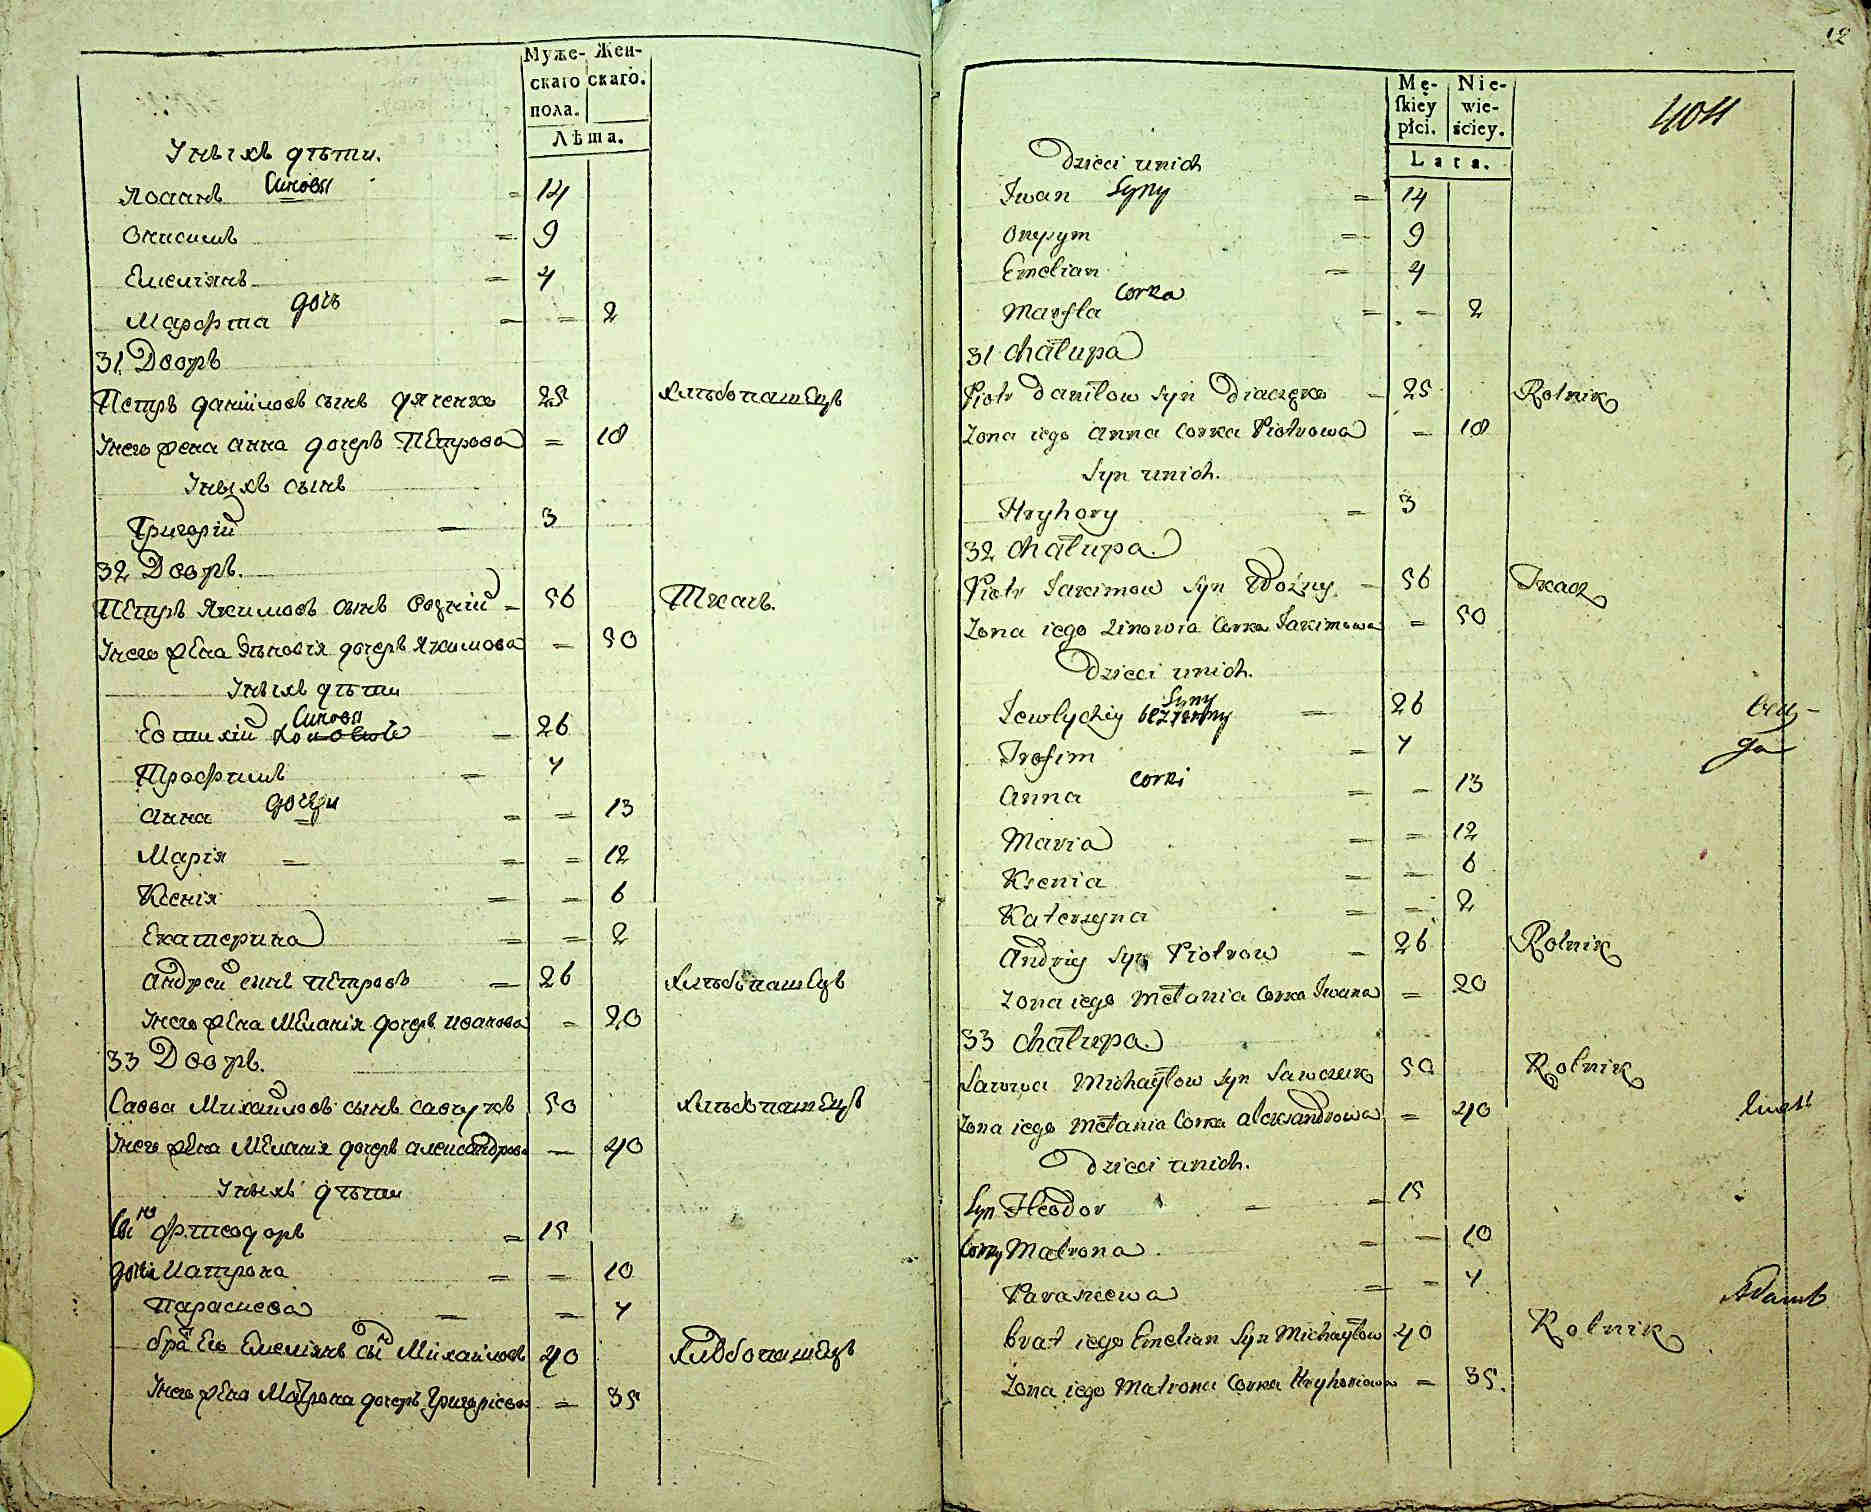 Муже- Жен-
скаго скаго.
пола.
Лѣта.
У нихъ дѣти.
Иоаннъ Синовя = 14
Онисимъ = 9
Емелiянъ = 4
Марфта дочь = = 2
31 Дворъ
Петръ данiиловъ сынъ дяченко 25 хлѣбопашецъ
У него жена анна дочеръ Петрова = 18
У нихъ сынъ
Григорiй = 3
32 Дворъ.
Петръ Якимовъ сынъ возний = 56 Ткачь.
У него жена Зѣновiя дочеръ Якимова = 50
У нихъ дѣти
Евтихiй Синовя = 26
Трофимъ = 4
Анна дочери = = 13
Марiя = = = 12
Ксенiя = = 6
Екатерина = = 2
андрей сынъ петровъ = 26 хлѣбопашецъ
У него жена Меланiя дочеръ иванова = 20
33 Дворъ.
Савва Михайловъ сынъ савчукъ 50 хлѣбопашецъ
У него жена Меланiя дочеръ александрова = 40
У нихъ дѣти
Сынъ Фтеодоръ = 15
дочки Матрона = = 10
Параскева = = 4
братъ Его Емелiянъ сы Михайловъ 40 хлѣбопашецъ
У него жена Матрона дочеръ Григорiева = 35
12
404
Mę- Nie-
skiey wie-
płci. ściey.
Lata.
Dzieci unich
Iwan Syny = 14
Onysym = 9
Emelian = 4
Marfta Corka = - 2
31 chałupa
Piotr Daniłow Syn Diaczęko = 25 Rolnik
Zona iego Anna Corka Piotrowa = 18
Syn unich.
Hryhory = 3
32 chałupa.
Piotr Jakimow Syn Woźny = 56 Tkacz
Zona iego Zinowia Corka Jakimowa = 50
Dzieci unich.
Jewtychiy Syny = 26
Trofim = 4
Anna Corki = - 13
Maria = = 12
Ksenia = = 6
Katerzyna = - 2
Andriy Syn Piotrow = 26 Rolnik
Zona iego Mełania Corka Iwana = 20
33 chałupa.
Sawwa Michayłow Syn Sawczuk 50 Rolnik
Zona iego Mełania Corka Alexandrowa = 40
Dzieci unich.
Syn Fteodor = = 15
Corky Matrona = - 10
Paraskewa = - 4
brat iego Emelian Syn Michayłow 40 Rolnik
Zona iego Matrona Corka Hryhoriowa = 35.